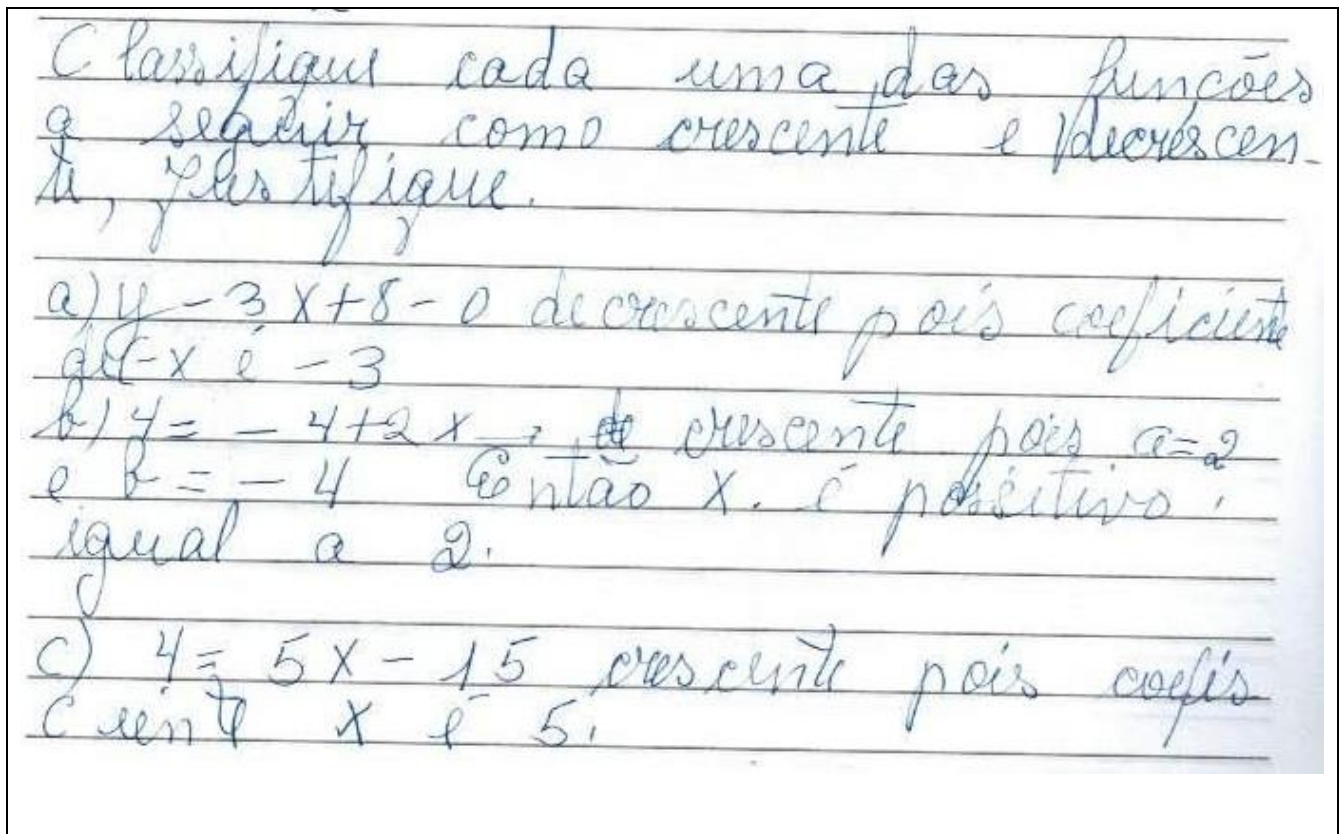 Classifique cada uma das funcões
a seguir como crescente e decrescen-
te, Justifique.
a) y - 3x+8 - 0 decrescente pois coeficiente
x é -3
b) y = - 4+2x → crescente pois a=2
e b = - 4 Então x. é positivo.
igual a 2.
c) y = 5x - 15 crescente pois coefis
ciente x é 5.